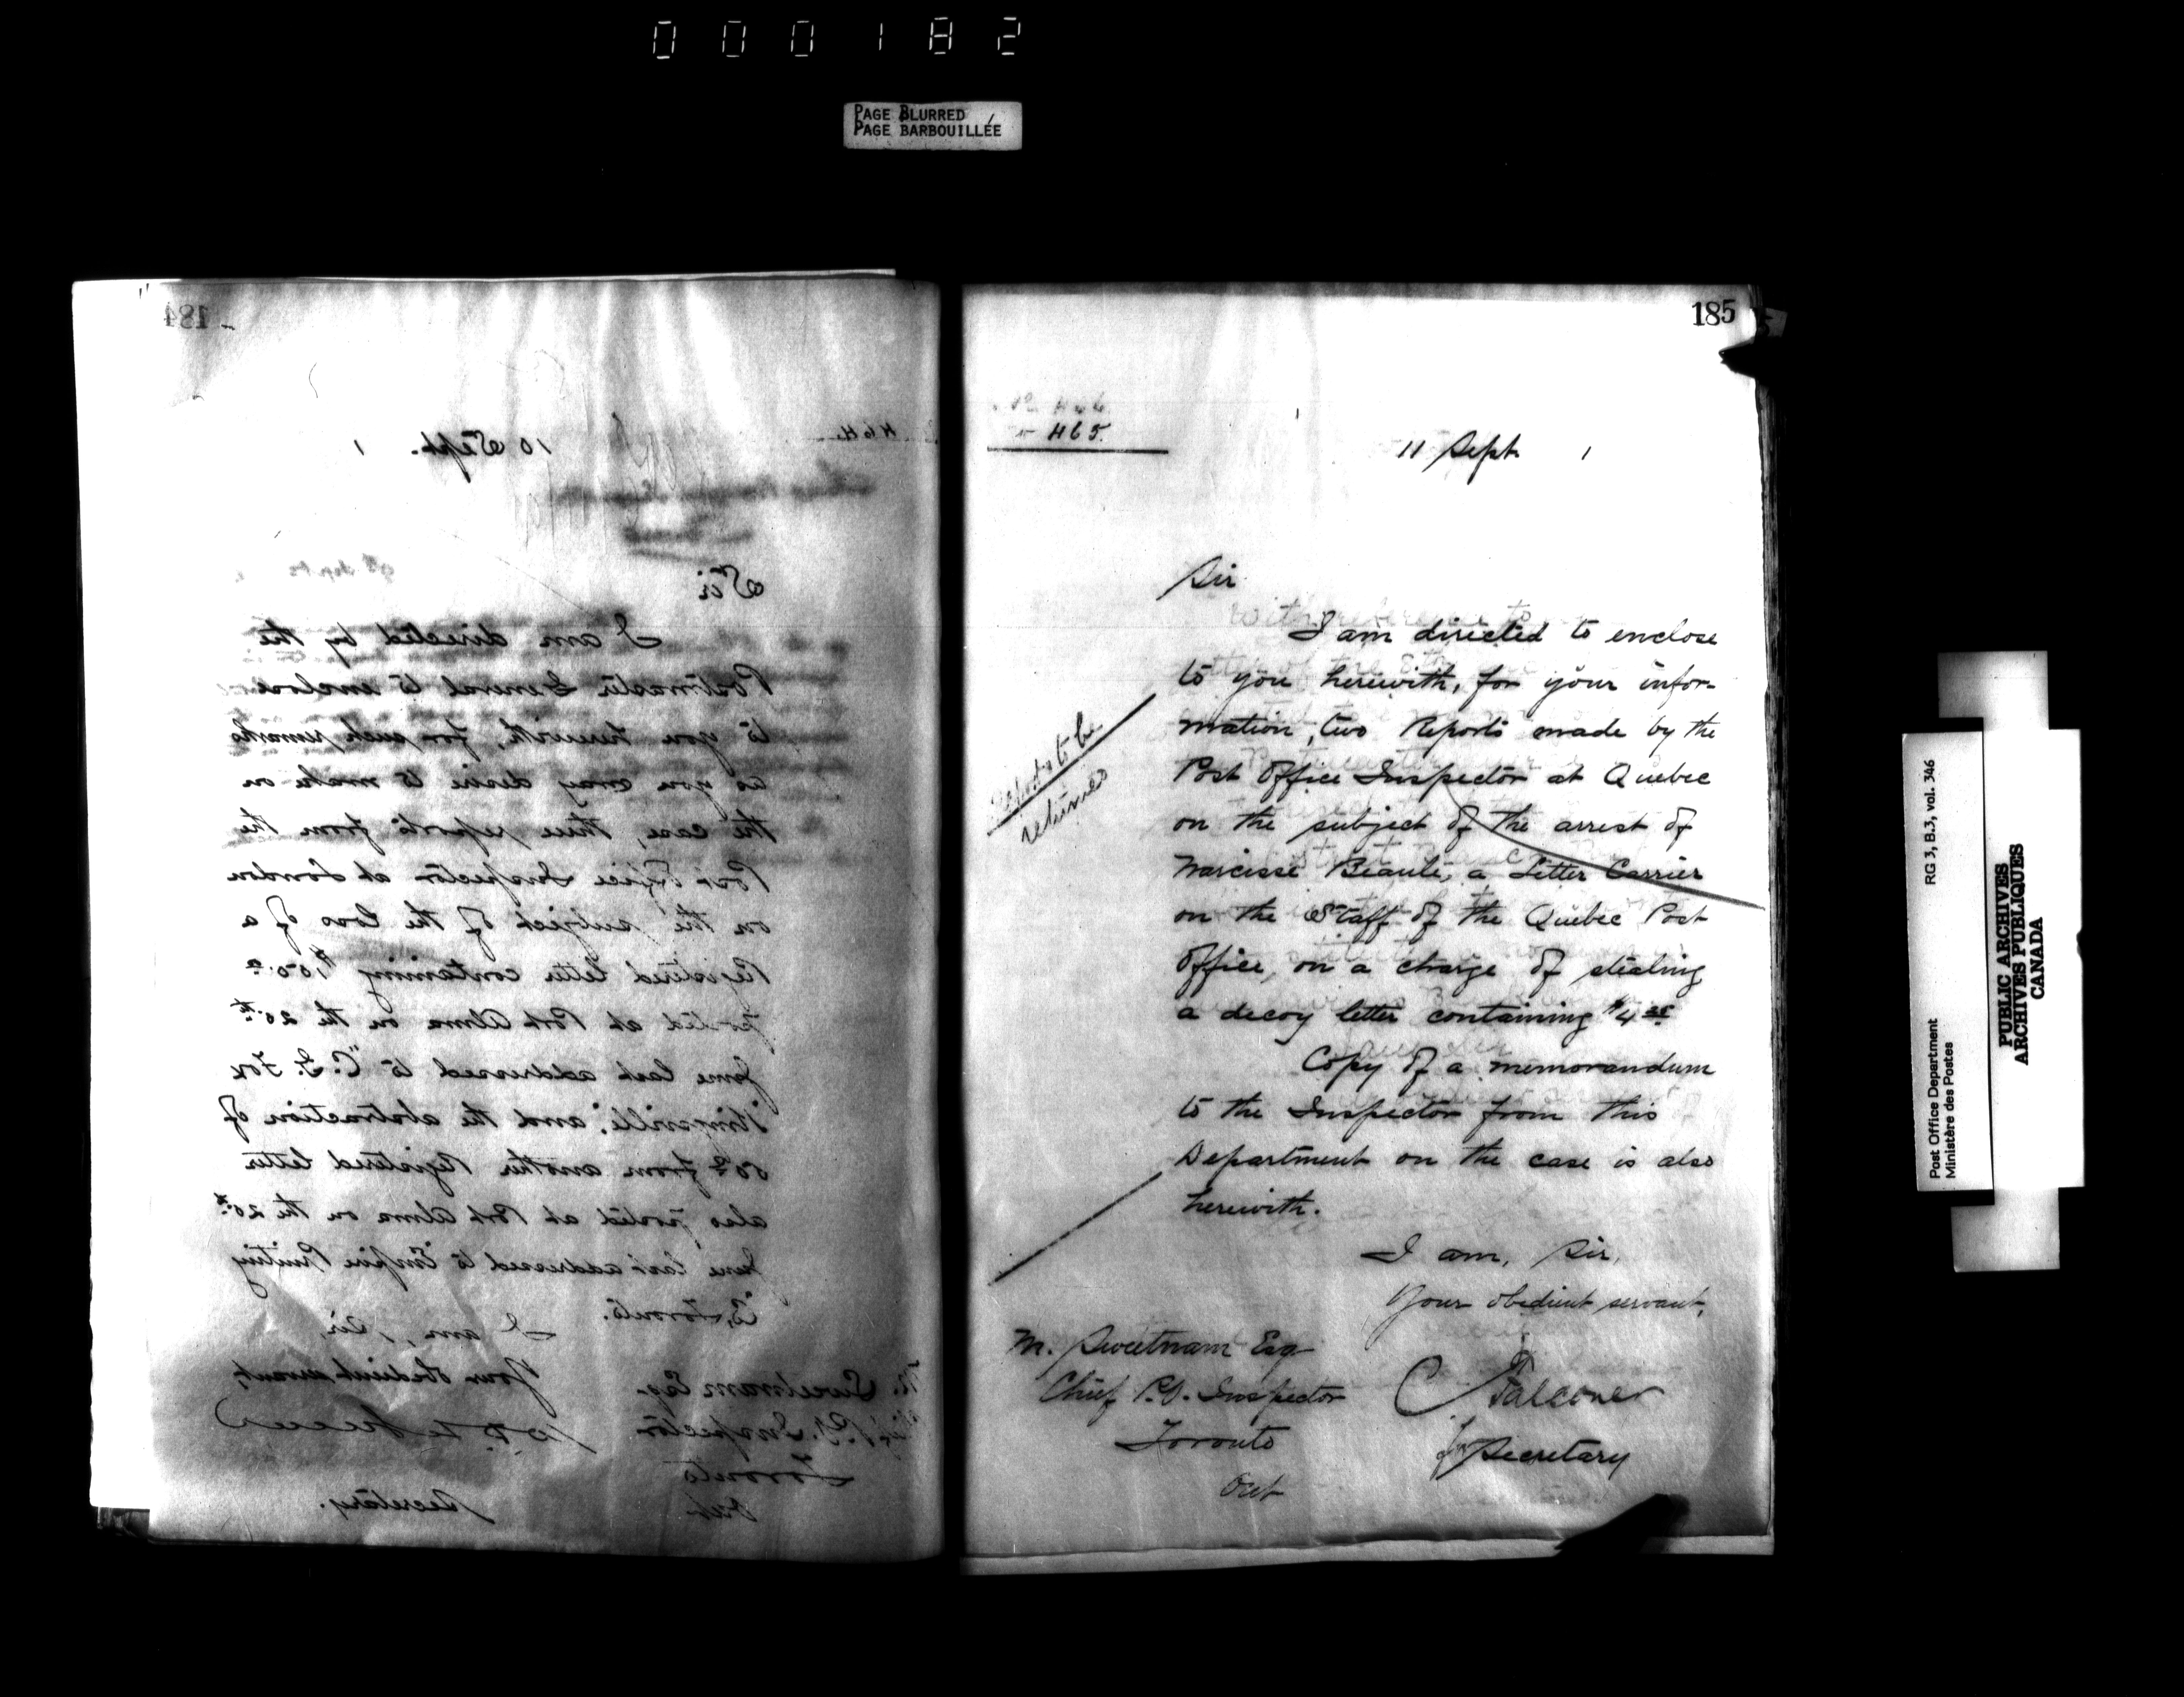 000182
PAGE BLURRED
PAGE BARBOUILLÉE
184
464
10 Sept. 1
Sir
I am directed by the
Postmaster General to enclose
to you herewith, for such remarks
as you may desire to make on
the case, three reports from the
Post Office Inspector at London
on the subject of the loss of a
Registered letter containing
posted at Port Alma on the 20th
June last addressed to "C. F. Fox
Kingsville", and the abstraction of
from another Registered letter
also posted at Port Alma on the 20th
June last addressed to Empire Printing
Co, Toronto.
I am, Sir,
Your obedient servant,
Secretary.
M. Sweetnam Esq.
Chief P.O. Inspector
Toronto
Ont
185
465.
11 Sept 1
Sir
I am directed to enclose
to you herewith, for your infor-
mation, two Reports made by the
Post Office Inspector at Quebec
on the subject of the arrest of
Narcisse Beaulé, a Letter Carrier
on the Staff of the Quebec Post
Office, on a charge of stealing
a decoy letter containing
Copy of a memorandum
to the Inspector from this
Department on the case is also
herewith.
Reports to be
returned
I am, Sir,
Your obedient servant,
C Falconer
for Secretary
M. Sweetnam Esq
Chief P.O. Inspector
Toronto
Ont
Post Office Department
Ministère des Postes
RG 3, B.3, vol. 346
PUBLIC ARCHIVES
ARCHIVES PUBLIQUES
CANADA